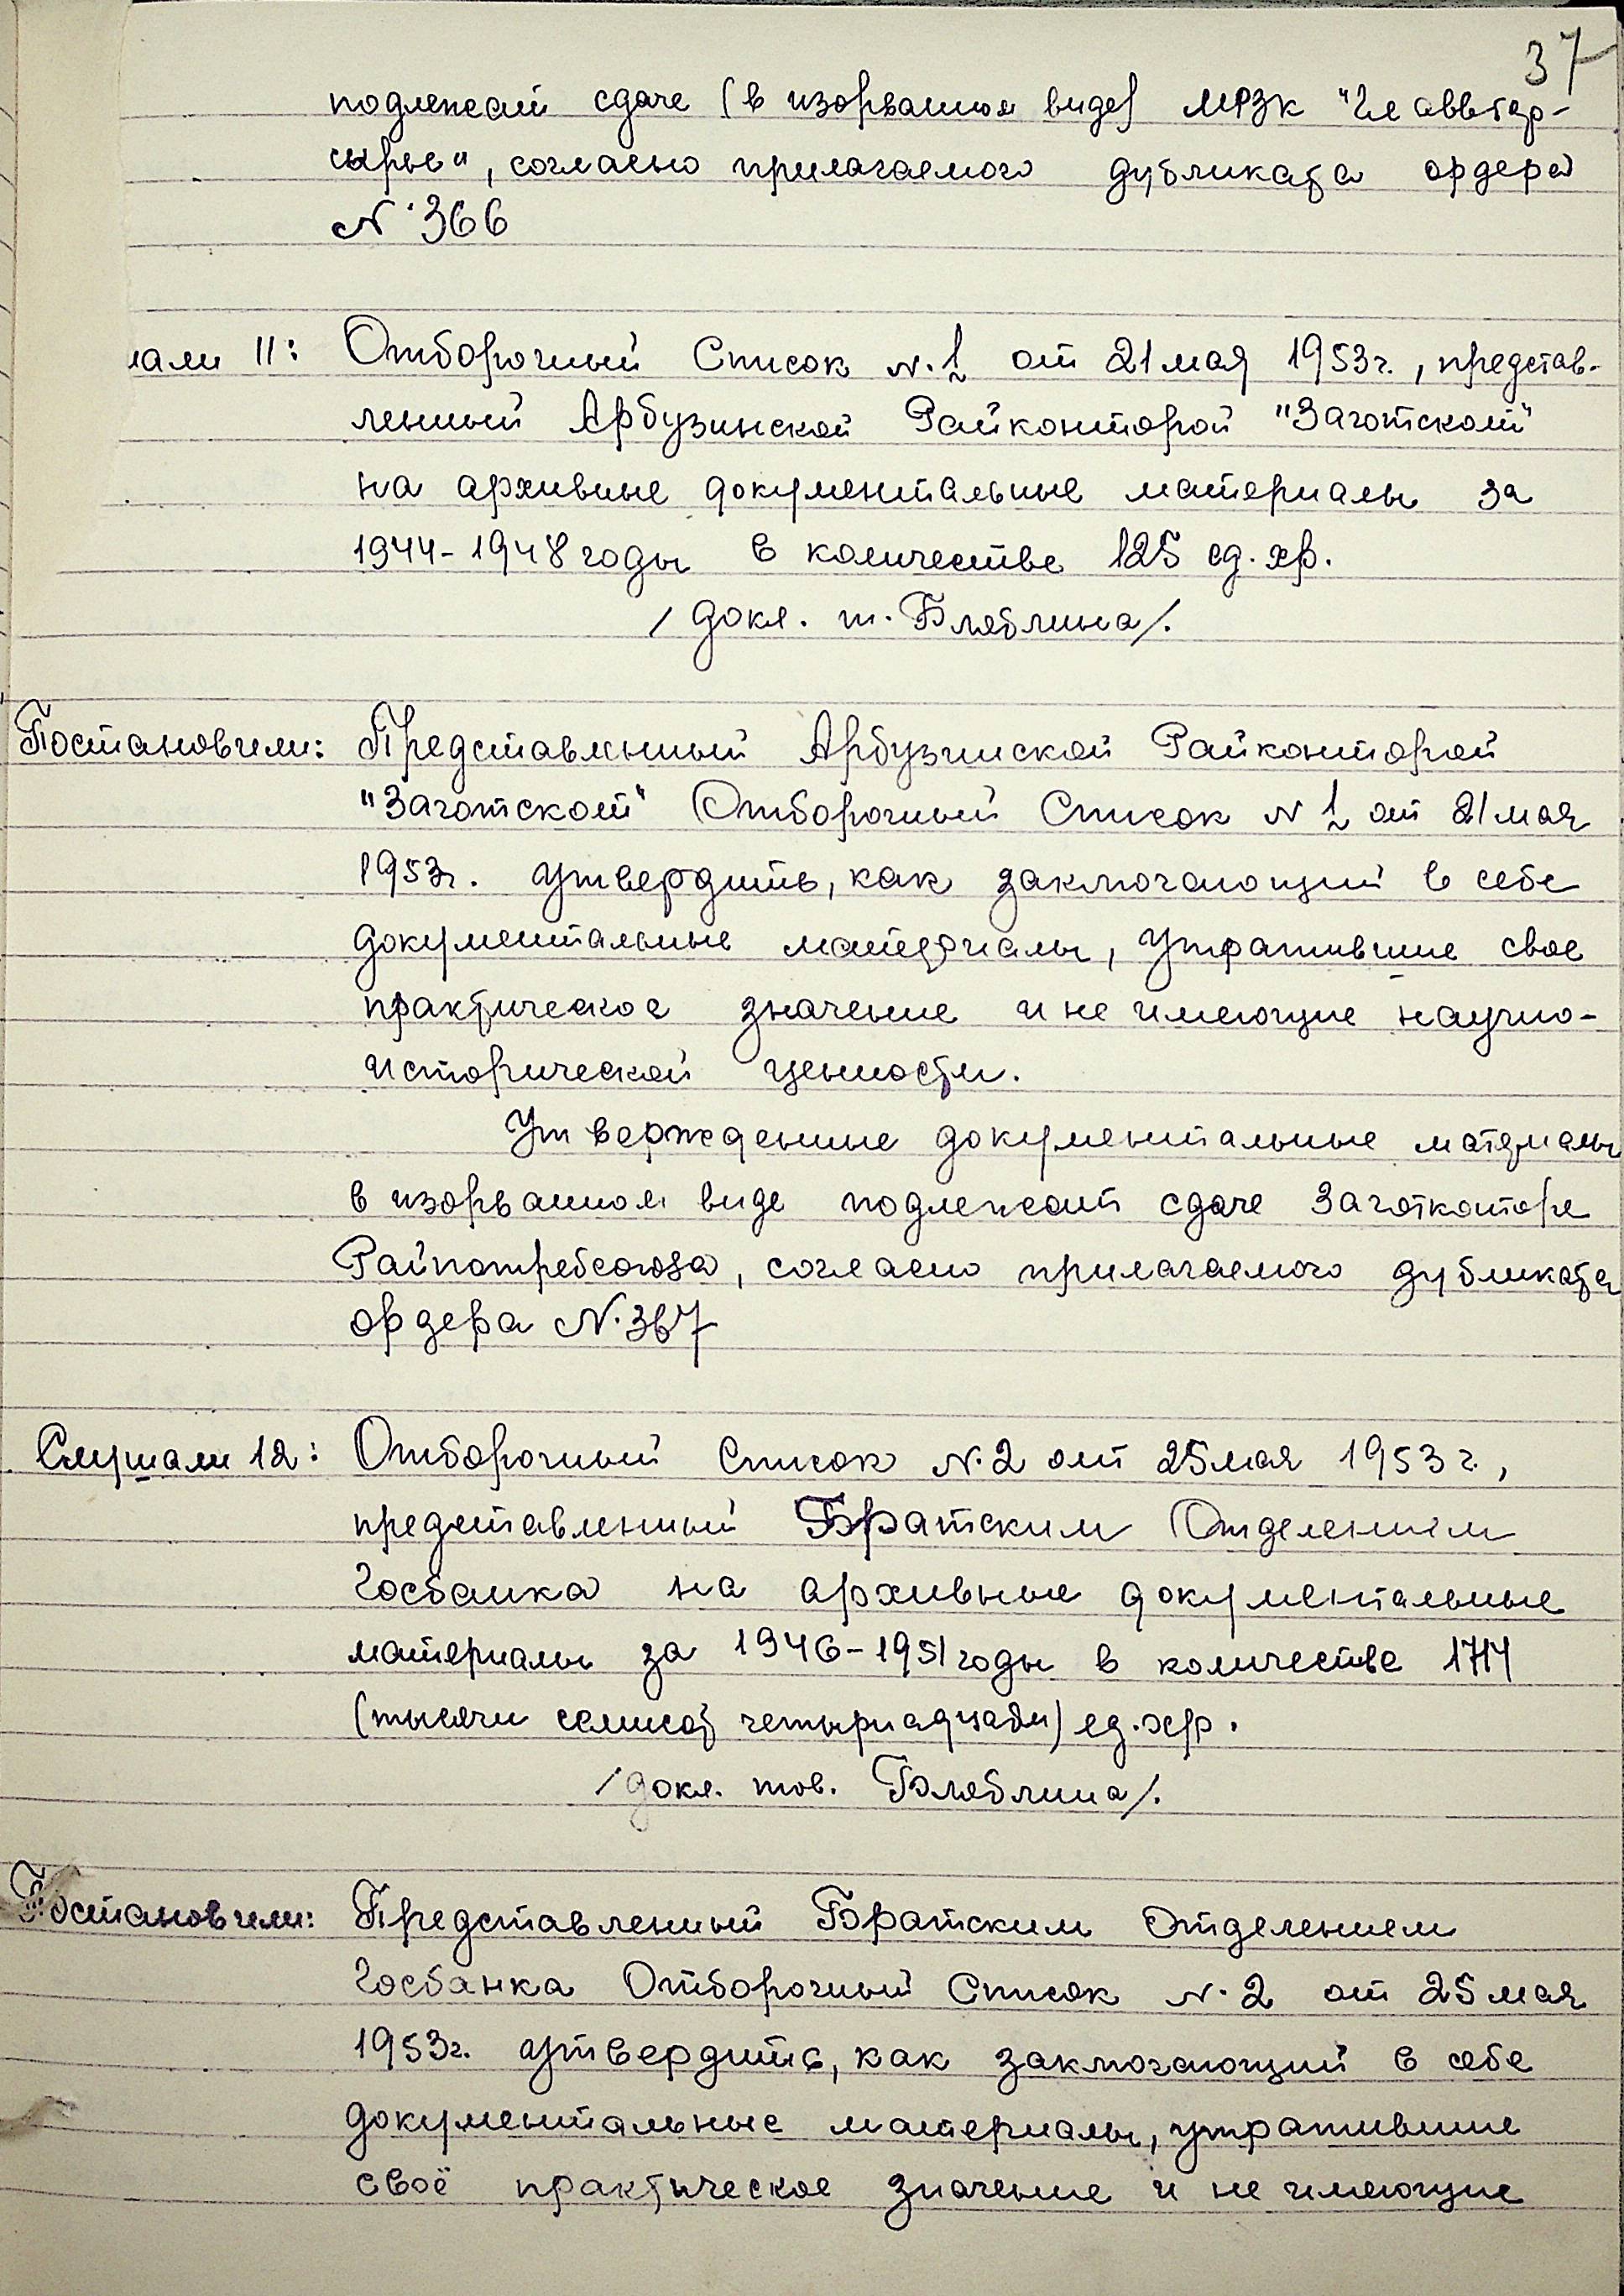 37
подлежат сдаче (в изорванном виде) МРЗК "Главвтор-
сырье", согласно прилагаемого дубликата ордера
N 366
шали 11: Отборочный Список N.1 от 21 мая 1953г., представ-
ленный Арбузинской Райконторой "Заготскот"
на архивные документальные материалы за
1944-1948 годы в количестве 125 ед. хр.
/докл. т. Бляблина/.
Постановили: Представленный Арбузинской Райконторой
"Заготскот" Отборочный Список N 1 от 21 мая
1953г. утвердить, как заключающий в себе
документальные материалы, утратившие свое
практическое значение и не имеющие научно-
исторической ценности.
Утвержденные документальные материалы
в изорванном виде подлежат сдаче Заготконторе
Райпотребсоюза, согласно прилагаемого дубликата
ордера N.367
Слушали 12: Отборочный Список N.2 от 25 мая 1953 г.,
представленный Братским Отделением
Госбанка на архивные документальные
материалы за 1946-1951 годы в количестве 1714
(тысячи семисот четырнадцати) ед. хр.
/докл. тов. Бляблина/.
Постановили: Представленный Братским Отделением
Госбанка Отборочный Список N.2 от 25 мая
1953г. утвердить, как заключающий в себе
документальные материалы, утратившие
своё практическое значение и не имеющие